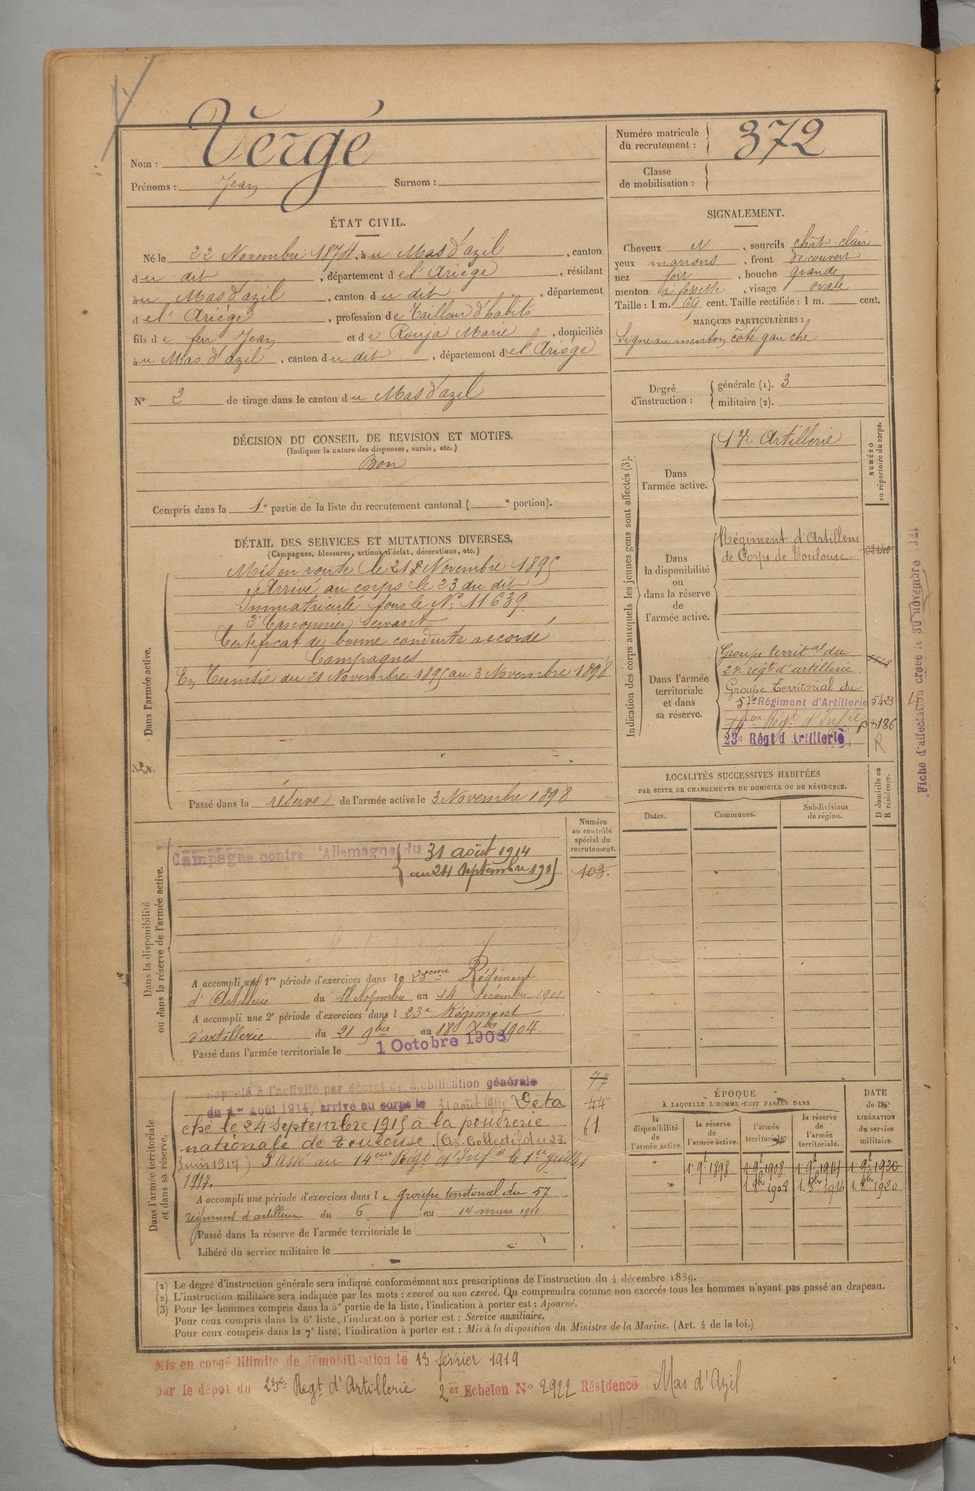 Nom : Vergé
Prénoms : Jean Surnom :
Numéro matricule du recrutement : 372
Classe de mobilisation :
ÉTAT CIVIL.
Né le 22 Novembre 1874, à u Mas d'azil, canton
d u dit, département d e l'Ariège, résidant
à u Mas d'azil, canton d u dit, département
d e l'Ariège, profession d e Tailleur d'habits
fils d e feu Jean et d e Rouja Marie, domiciliés
à u Mas d'azil, canton d u dit, département d e l'Ariège
N° 2 de tirage dans le canton d u Mas d'azil
SIGNALEMENT.
Cheveux N, sourcils chât-clair
yeux marrons, front découvert
nez fort, bouche grande
menton à fossette, visage ovale
Taille : 1 m. 69 cent. Taille rectifiée : 1 m. cent.
MARQUES PARTICULIÈRES :
Signe au menton côté gauche
Degré d'instruction : générale (1). 3
militaire (2).
DÉCISION DU CONSEIL DE REVISION ET MOTIFS.
(Indiquer la nature des dispenses, sursis, etc.)
Bon
Compris dans la 1e partie de la liste du recrutement cantonal ( e portion).
DÉTAIL DES SERVICES ET MUTATIONS DIVERSES.
(Campagnes, blessures, actions d'éclat, décorations, etc.)
Dans l'armée active.
Mis en route le 21 Novembre 1895
Arrivé au corps le 23 du dit
Immatriculé sous le N° 11639
2e Canonnier Servant
Certificat de bonne conduite accordé
Campagnes
En Tunisie du 21 Novembre 1895 au 3 Novembre 1898
Passé dans la réserve de l'armée active le 3 Novembre 1898
Indication des corps auxquels les jeunes gens sont affectés (3).
NUMÉRO au répertoire du corps.
Dans l'armée active.
Artillerie
Dans la disponibilité ou dans la réserve de l'armée active.
Régiment d'Artillerie
de Corps de Toulouse
Dans l'armée territoriale et dans sa réserve.
Groupe territal du
2 regt d'artillerie
Groupe Territorial du
57e Régiment d'Artillerie 5423
14e Regt d'Infie 186
23e Régt d'Artillerie R
Fiche d'affectation créée le 30 novembre 1921
LOCALITÉS SUCCESSIVES HABITÉES
PAR SUITE DE CHANGEMENTS DE DOMICILE OU DE RÉSIDENCE.
Dates. Communes. Subdivisions de région. D domicile ou R résidence.
Numéro au contrôle spécial du recrutement.
Dans la disponibilité ou dans la réserve de l'armée active.
Campagne contre l'Allemagne du 31 août 1914
au 24 Septembre 1915
103
A accompli une 1re période d'exercices dans le 23eme Régiment
d'Artillerie du Novembre au 14 décembre 1901
A accompli une 2e période d'exercices dans l 23e Régiment
d'artillerie du 21 9bre au 18 Xbre 1904
Passé dans l'armée territoriale le 1 Octobre 1908
Dans l'armée territoriale et dans sa réserve.
Rappelé à l'activité par décret de mobilisation générale
du 1er Août 1914, arrivé au corps le 31 août 1914 Déta
ché le 24 septembre 1915 à la poudrerie
nationale de Toulouse (Av. Collectif du 22
juin 1917) Passé au 14eme Régt d'Infie le 1er juillet
1917.
77
44
61
A accompli une période d'exercices dans l e groupe territorial du 57
régiment d'artillerie du 6 au 14 mars 1911
Passé dans la réserve de l'armée territoriale le
Libéré du service militaire le
ÉPOQUE
À LAQUELLE L'HOMME DOIT PASSER DANS
la disponibilité de l'armée active. la réserve de l'armée active. l'armée territoriale. la réserve de l'armée territoriale.
DATE de la LIBÉRATION du service militaire.
(1) Le degré d'instruction générale sera indiqué conformément aux prescriptions de l'instruction du 4 décembre 1889.
(2) L'instruction militaire sera indiquée par les mots : exercé ou non exercé. On comprendra comme non exercés tous les hommes n'ayant pas passé au drapeau.
(3) Pour les hommes compris dans la 5e partie de la liste, l'indication à porter est : Ajourné.
Pour ceux compris dans la 6e liste, l'indication à porter est : Service auxiliaire.
Pour ceux compris dans la 7e liste, l'indication à porter est : Mis à la disposition du Ministre de la Marine. (Art. 4 de la loi.)
Mis en congé illimité de démobilisation le 13 février 1919
par le dépôt du 23e Regt d'Artillerie 2er Echelon N° 2922 Résidence Mas d'Azil